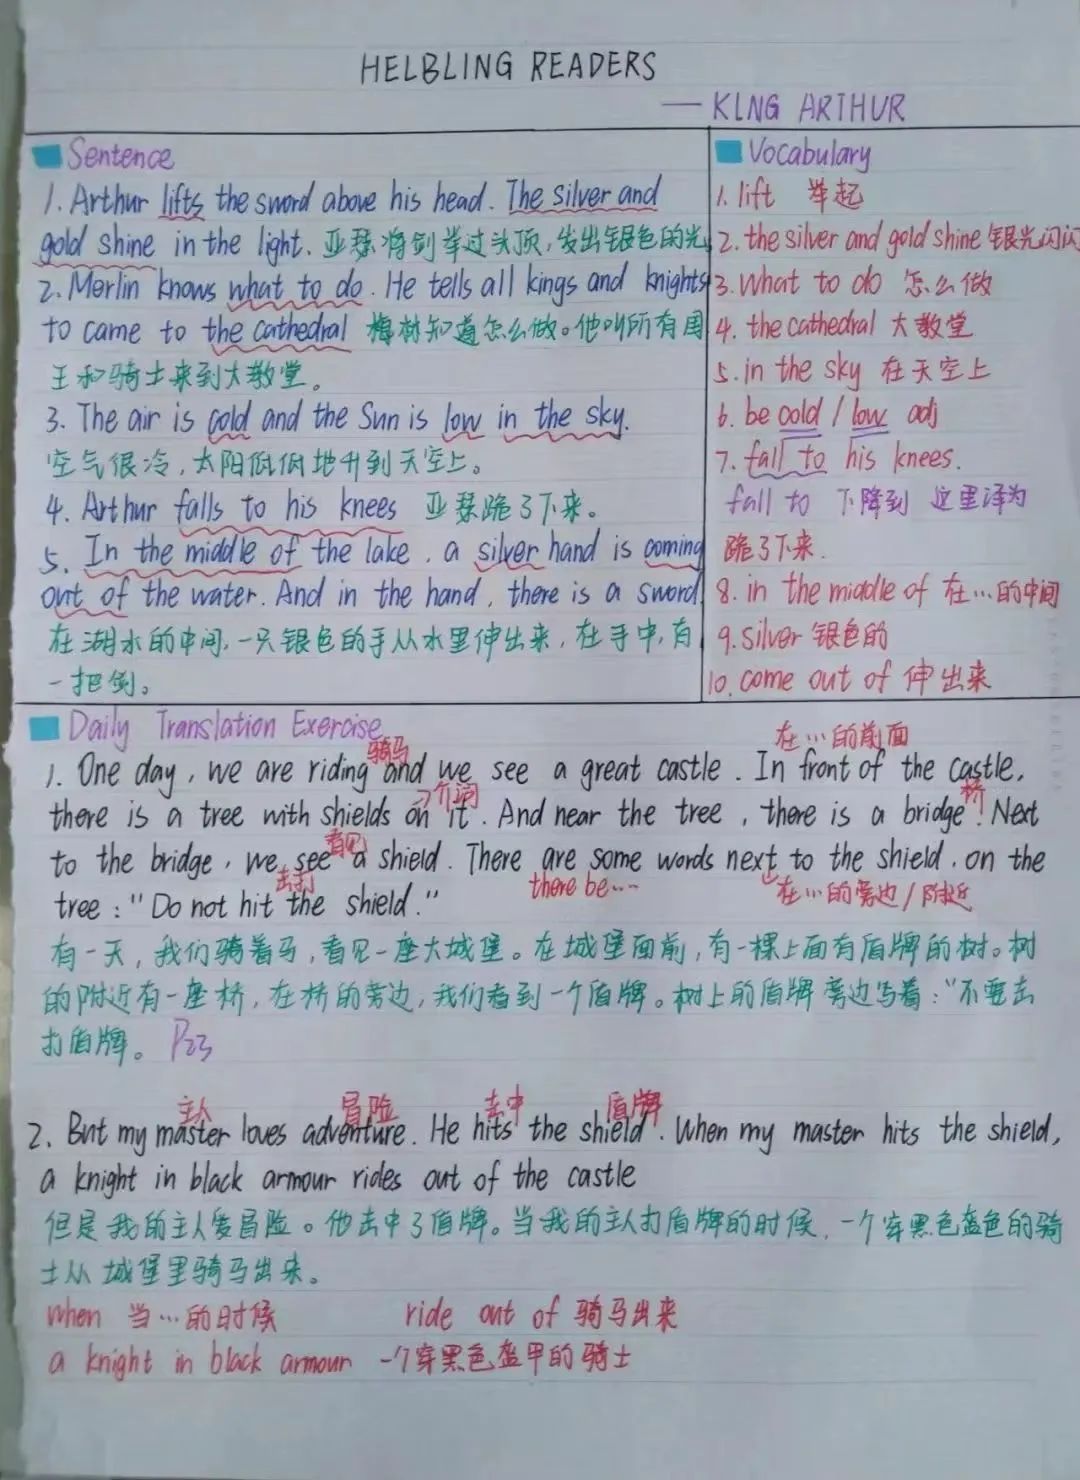 HELBLING READERS
— KLNG ARTHUR
Sentence
1. Arthur lifts the sword above his head. The silver and
gold shine in the light. 亚瑟将剑举过头顶,发出银色的光
2. Merlin knows what to do. He tells all kings and knights
to came to the cathedral 梅林知道怎么做。他叫所有国
王和骑士来到大教堂。
3. The air is cold and the Sun is low in the sky.
空气很冷,太阳低低地升到天空上。
4. Arthur falls to his knees 亚瑟跪了下来。
5. In the middle of the lake, a silver hand is coming
out of the water. And in the hand, there is a sword
在湖水的中间,一只银色的手从水里伸出来,在手中,有
一把剑。
Vocabulary
1. lift 举起
2. the silver and gold shine 银光闪闪
3. What to do 怎么做
4. the cathedral 大教堂
5. in the sky 在天空上
6. be cold / low adj
7. fall to his knees.
fall to 下降到 这里译为
跪了下来.
8. in the middle of 在…的中间
9. silver 银色的
10. come out of 伸出来
Daily Translation Exercise
骑马 在…的前面
1. One day, we are riding and we see a great castle. In front of the castle,
个词 桥
there is a tree with shields on it. And near the tree, there is a bridge! Next
看见
to the bridge, we see a shield. There are some words next to the shield, on the
击打 there be… 在…的旁边/附近
tree: "Do not hit the shield."
有一天,我们骑着马,看见一座大城堡。在城堡面前,有一棵上面有盾牌的树。树
的附近有一座桥,在桥的旁边,我们看到一个盾牌。树上的盾牌旁边写着:"不要击
打盾牌。 P23
主人 冒险 击中 盾牌
2. But my master loves adventure. He hits the shield. When my master hits the shield,
a knight in black armour rides out of the castle
但是我的主人爱冒险。他击中了盾牌。当我的主人打盾牌的时候,一个穿黑色盔色的骑
士从城堡里骑马出来。
when 当…的时候 ride out of 骑马出来
a knight in black armour 一个穿黑色盔甲的骑士